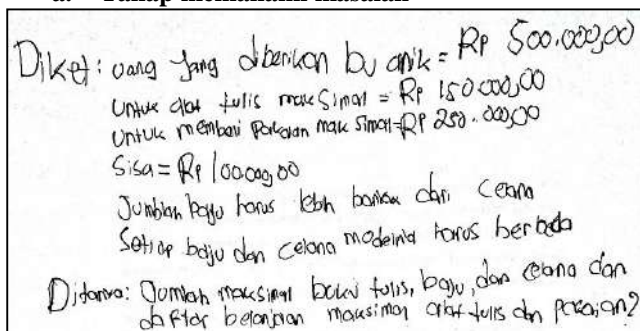 Diket: uang yang diberikan bu anik = Rp 500.000,00
Untuk alat tulis maksimal = Rp 150.000,00
Untuk membeli pakaian maksimal = Rp 250.000,00
Sisa = Rp 100.000,00
Jumlah baju harus lebih banyak dari celana
Setiap baju dan celana modelnya harus berbeda
Ditanya: Jumlah maksimal buku tulis, baju, dan celana dan
daftar belanjaan maksimal alat tulis dan pakaian?